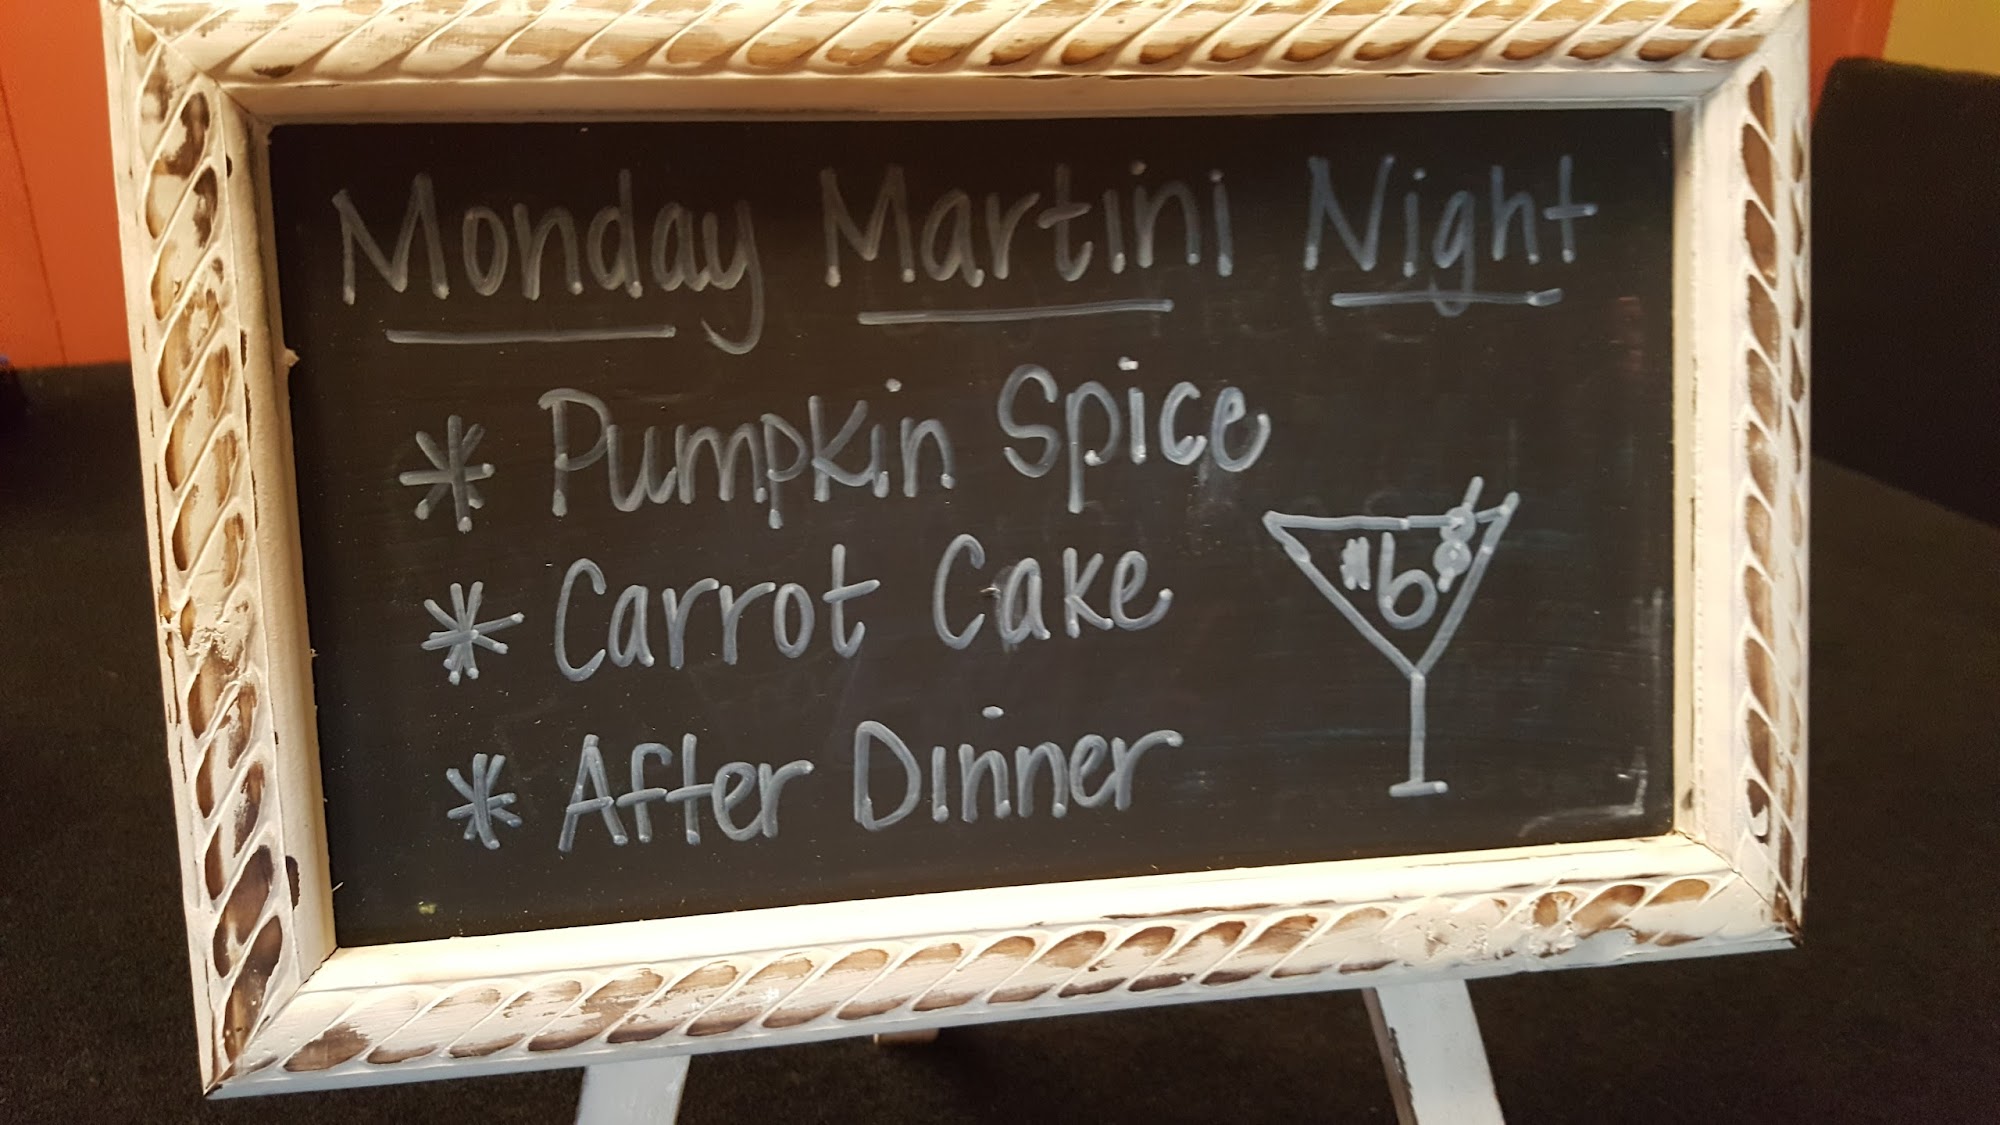 Monday Martini Night
* Pumpkin Spice
* Carrot Cake
* After Dinner
$6